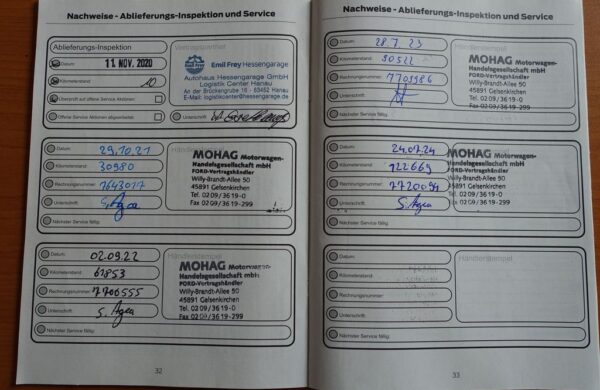 Nachweise - Ablieferungs-Inspektion und Service
Ablieferungs-Inspektion
Datum: 11. NOV. 2020
Kilometerstand: 10
Überprüft auf offene Service Aktionen:
Offene Service Aktionen abgearbeitet:
Unterschrift:
Emil Frey Hessengarage
Autohaus Hessengarage GmbH
Logistik Center Hanau
An der Brückengrube 16 - 63452 Hanau
E-Mail: logistikcenter@hessengarage.de
Datum: 29.10.21
Kilometerstand: 30980
Rechnungsnummer: 7643017
Unterschrift:
Nächster Service fällig:
MOHAG Motorwagen-
Handelsgesellschaft mbH
FORD-Vertragshändler
Willy-Brandt-Allee 50
45891 Gelsenkirchen
Tel. 0209/3619-0
Fax 0209/3619-299
Datum: 02.09.22
Kilometerstand: 61853
Rechnungsnummer: 7700555
Unterschrift:
Nächster Service fällig:
Händlerstempel
MOHAG Motorwagen-
Handelsgesellschaft mbH
FORD-Vertragshändler
Willy-Brandt-Allee 50
45891 Gelsenkirchen
Tel. 0209/3619-0
Fax 0209/3619-299
32
Nachweise - Ablieferungs-Inspektion und Service
Datum: 28.7.23
Kilometerstand:
Rechnungsnummer:
Unterschrift:
Nächster Service fällig:
MOHAG Motorwagen-
Handelsgesellschaft mbH
FORD-Vertragshändler
Willy-Brandt-Allee 50
45891 Gelsenkirchen
Tel. 0209/3619-0
Fax 0209/3619-299
Datum: 24.07.24
Kilometerstand: 122669
Rechnungsnummer: 7720094
Unterschrift:
Nächster Service fällig:
MOHAG Motorwagen-
Handelsgesellschaft mbH
FORD-Vertragshändler
Willy-Brandt-Allee 50
45891 Gelsenkirchen
Tel. 0209/3619-0
Fax 0209/3619-299
Datum:
Kilometerstand:
Rechnungsnummer:
Unterschrift:
Nächster Service fällig:
Händlerstempel
33